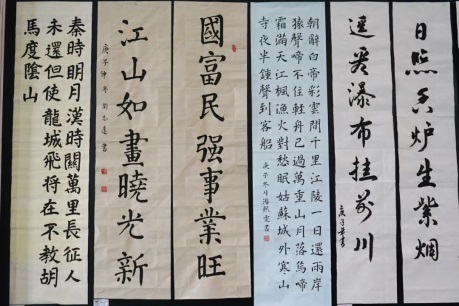 日照香炉生紫烟
遥看瀑布挂前川
朝辭白帝彩雲間千里江陵一日還兩岸
猿聲啼不住輕舟已過萬重山月落烏啼
霜滿天江楓漁火對愁眠姑蘇城外寒山
寺夜半鐘聲到客船
庚子冬月
國富民强事業旺
江山如畫曉光新
庚子仲冬
秦時明月漢時關萬里長征人
未還但使龍城飛将在不教胡
馬度陰山